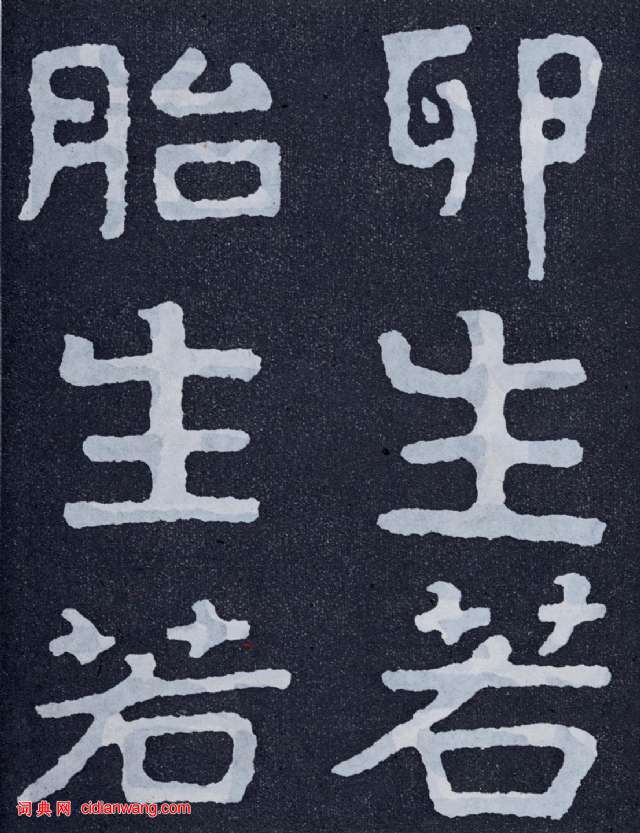 卵生若
胎生若
词典网 cidianwang.com